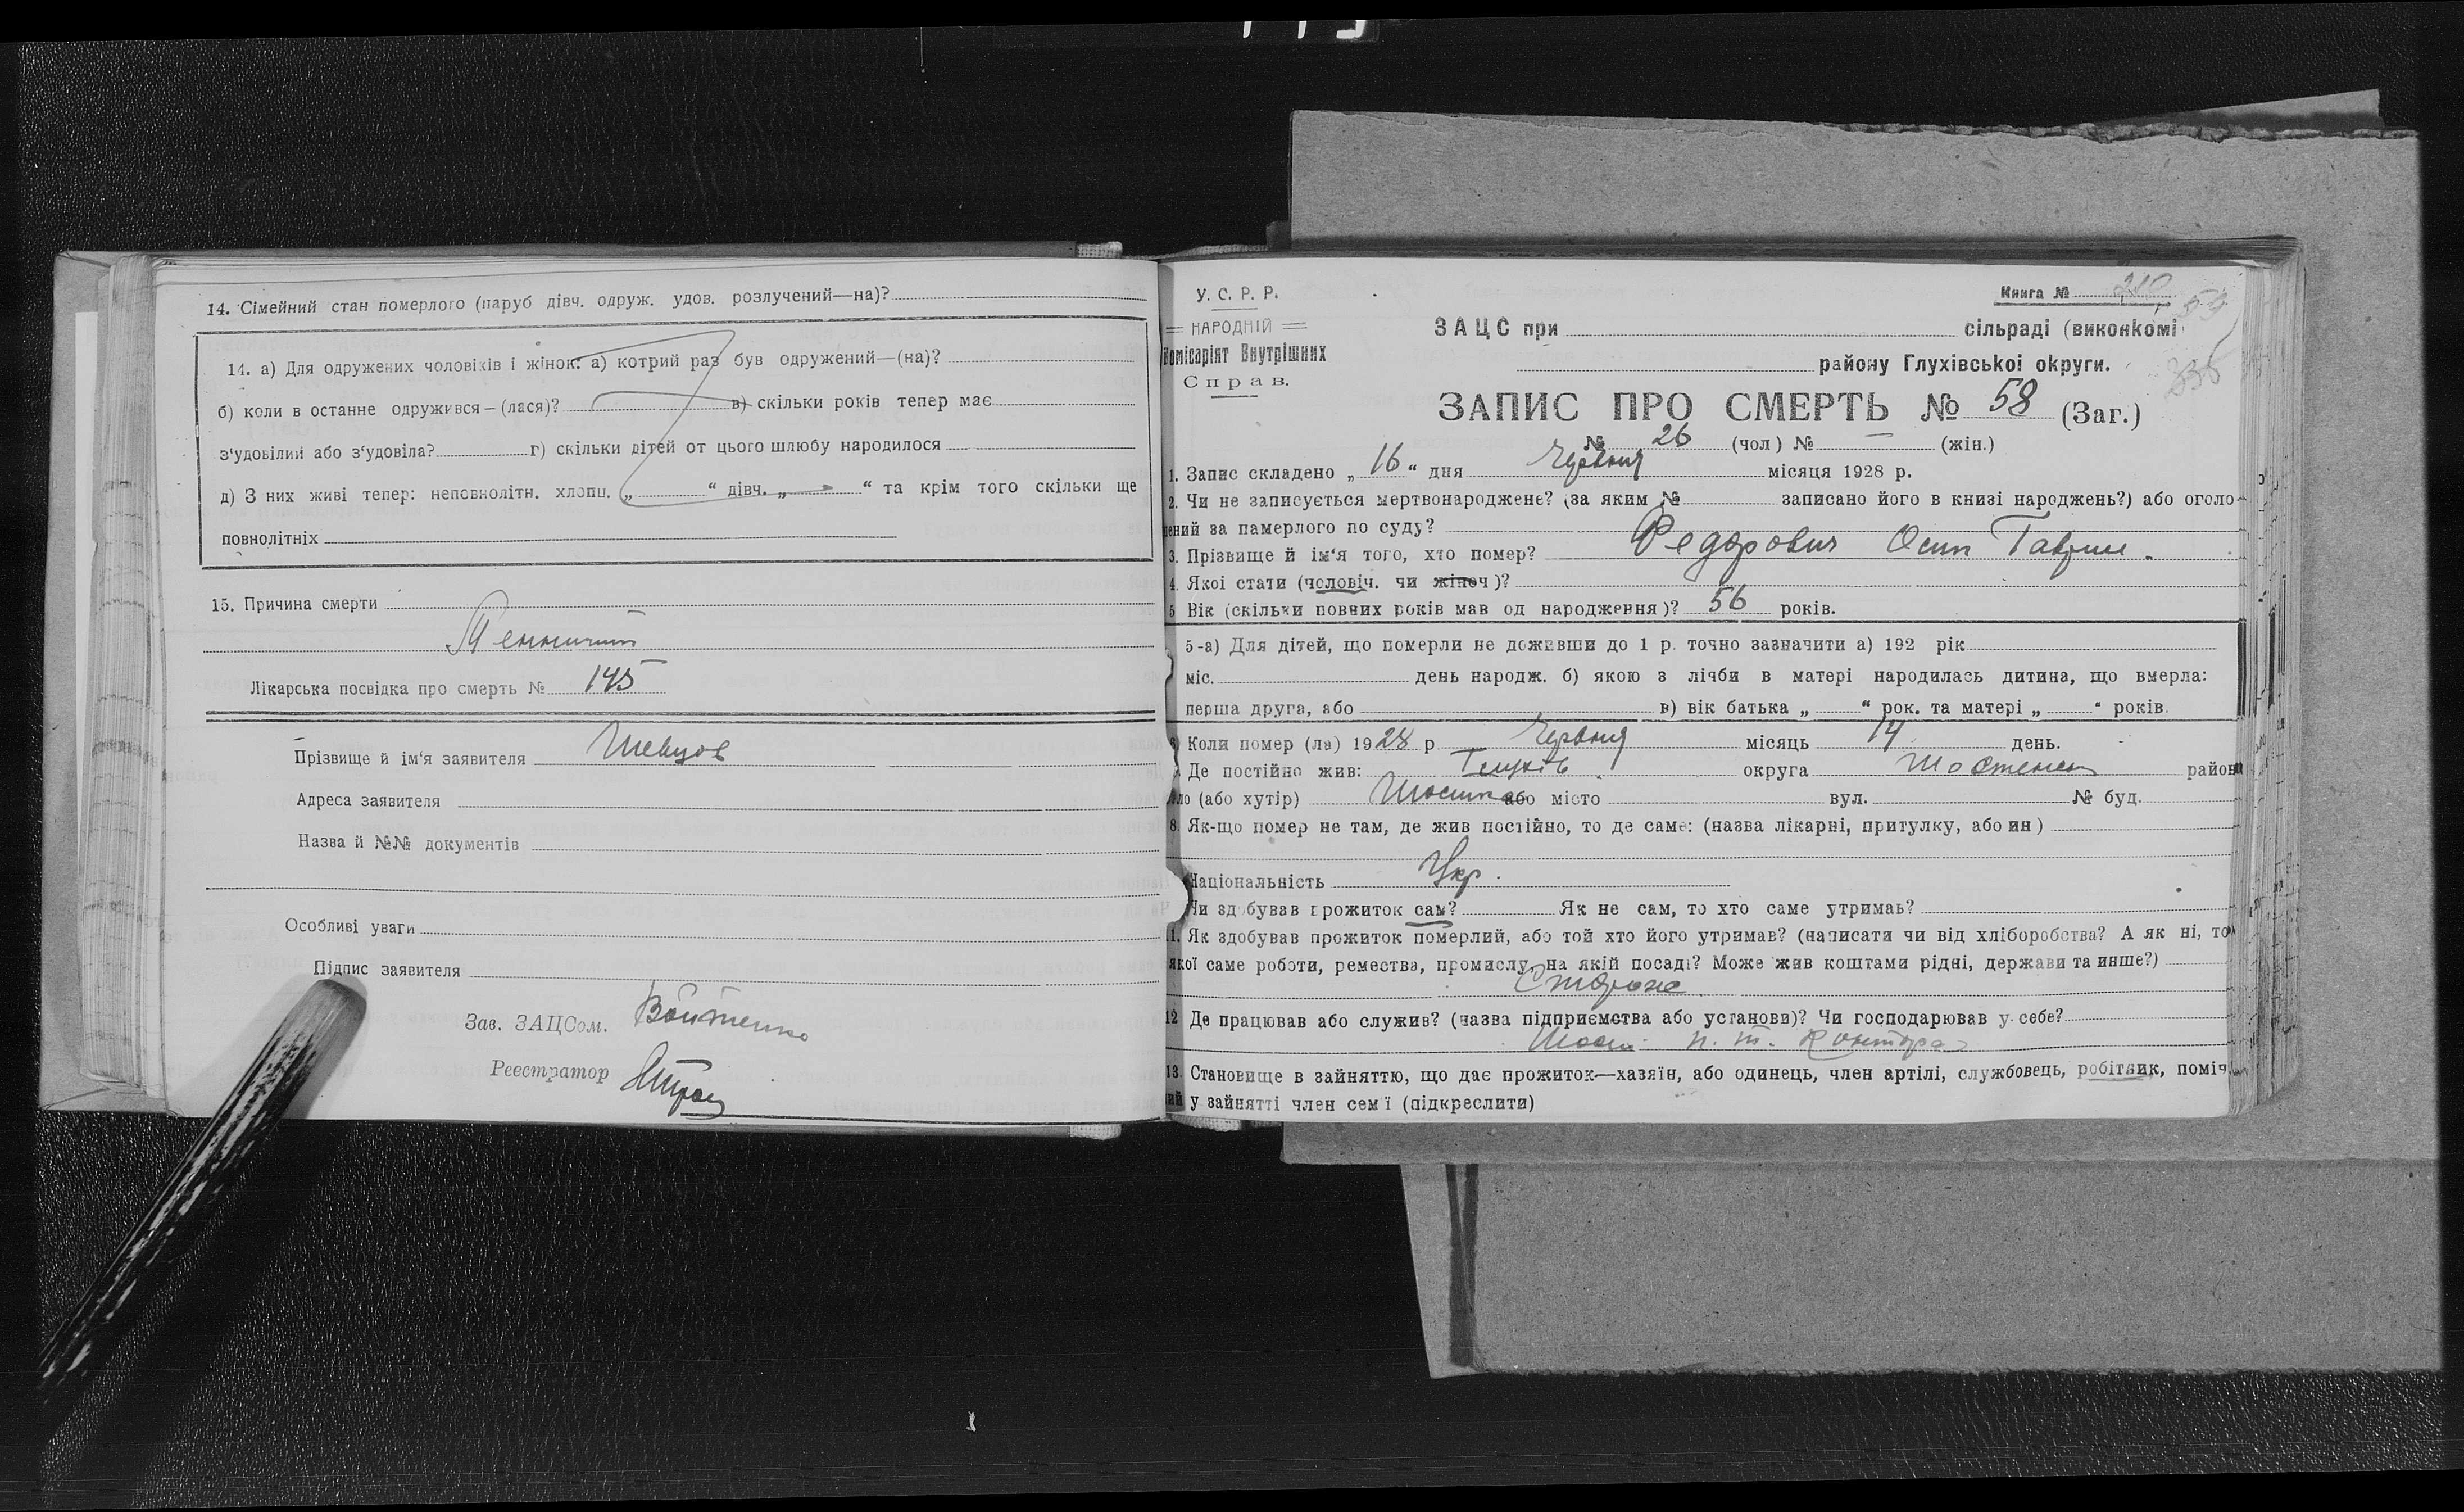 14. Сімейний стан померлого (паруб дівч. одруж. удов. розлучений—на)?
14. а) Для одружених чоловіків і жінок: а) котрий раз був одружений—(на)?
б) коли в останне одружився—(лася)? в) скільки років тепер має
з'удовілий або з'удовіла? г) скільки дітей от цього шлюбу народилося
д) З них живі тепер: неповнолітн. хлопц. „ “ дівч. „ “ та крім того скільки ще
повнолітніх
15. Причина смерти
Лікарська посвідка про смерть № 145
Прізвище й ім'я заявителя Шевцов
Адреса заявителя
Назва й №№ документів
Особливі уваги
Підпис заявителя
Зав. ЗАЦСом. Войтенко
Реєстратор
У. С. Р. Р.
НАРОДНІЙ
Комісаріят Внутрішних
Справ.
Книга № 210
59
335
ЗАЦС при сільраді (виконкомі
району Глухівської округи.
ЗАПИС ПРО СМЕРТЬ № 58 (Заг.)
№ 26 (чол) № — (жін.)
1. Запис складено „16“ дня Червня місяця 1928 р.
2. Чи не записується мертвонароджене? (за яким № записано його в книзі народжень?) або оголо-
шений за памерлого по суду?
3. Прізвище й ім'я того, хто помер? Федорович Осип Гаврил.
4. Якої стати (чоловіч. чи жіноч)?
5 Вік (скільки повних років мав од народження)? 56 років.
5-а) Для дітей, що померли не доживши до 1 р. точно зазначити а) 192 рік
міс. день народж. б) якою з лічби в матері народилась дитина, що вмерла:
перша друга, або в) вік батька „ “ рок. та матері „ “ років.
Коли помер (ла) 1928 р Червня місяць 14 день.
Де постійно жив: Глухів округа район
(або хутір) Шостка або місто вул. № буд.
8. Як-що помер не там, де жив постійно, то де саме: (назва лікарні, притулку, або ин)
Національність Укр.
Чи здобував прожиток сам? Як не сам, то хто саме утримав?
11. Як здобував прожиток померлий, або той хто його утримав? (написати чи від хліборобства? А як ні, то
якої саме роботи, ремества, промислу, на якій посаді? Може жив коштами рідні, держави та инше?)
Сторож
12 Де працював або служив? (назва підприємства або установи)? Чи господарював у себе?
п. т. Контора
13. Становище в зайняттю, що дає прожиток—хазяїн, або одинець, член артілі, службовець, робітник, поміч.
у зайнятті член сем'ї (підкреслити)